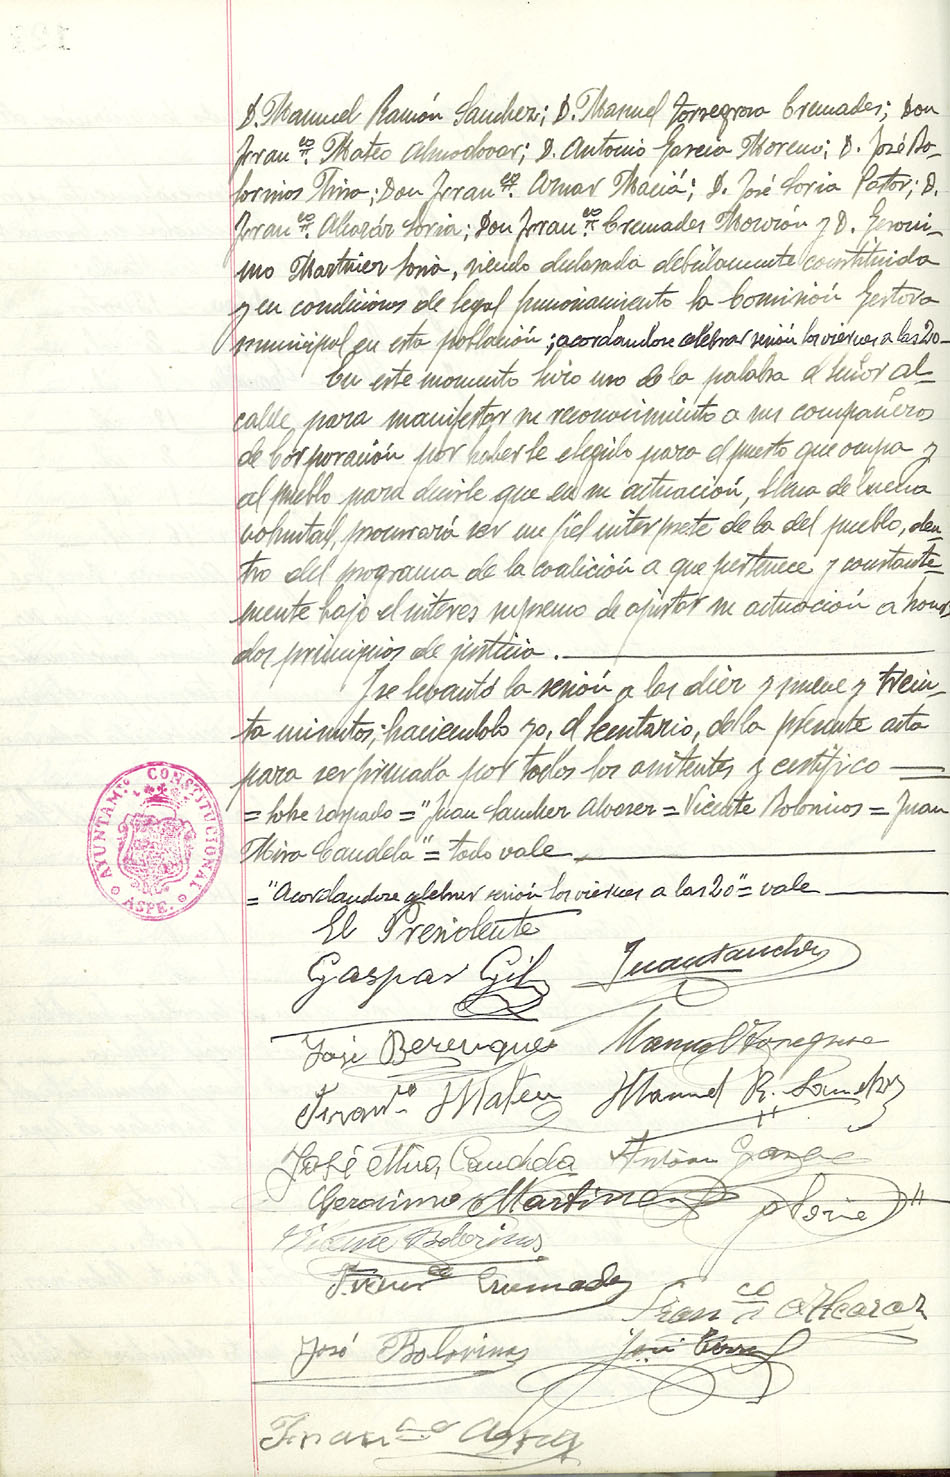 D. Manuel Ramón Sanchez; D. Manuel Torregrosa Cremades; Don
Fran^co. Mateo Almodovar; D. Antonio Garcia Moreno; D. José Bo-
lorinos Mira; Don Fran^co. Aznar Maciá; D. José Soria Pastor; D.
Fran^co. Alcazár Soria; Don Fran^co. Cremades Morrión y D. Geroni-
mo Martinez Soria, siendo declarada debidamente constituida
y en condiciones de legal funcionamiento la Comisión Gestora
municipal en esta población; acordandose celebrar sesión los viernes a las 20
En este momento hizo uso de la palabra el señor al-
calde, para manifestar su reconocimiento a sus compañeros
de Corporación por haberle elegido para el puesto que ocupa y
al pueblo para decirle que en su actuación, llena de buena
voluntad, procurará ser un fiel interprete de la del pueblo, den-
tro del programa de la coalición a que pertenece y constante-
mente bajo el interes supremo de ajustar su actuación a
dos principios de justicia.
Y se levantó la sesión a las diez y nueve y trein-
ta minutos; haciendolo yo, el secretario, de la presente acta
para ser firmada por todos los asistentes y certifico
= Sobre raspado = "Juan Sanchez Alvarez = Vicente Bolorinos = Juan
Mira Candela" = todo vale
= "Acordandose celebrar sesión los viernes a las 20" = vale
AYUNTAM^TO CONSTITUCIONAL
ASPE.
El Presidente
Gaspar Gil Juan Sanchez
José Berenguer Manuel Torregrosa
Fran^co Mateo Manuel R. Sanchez
José Mira Candela Antonio Garcia
Geronimo Martinez Soria
Vicente Bolorinos
Fran^co Cremades
Fran^co Alcazar
José Bolorinos José
Fran^co Aznar